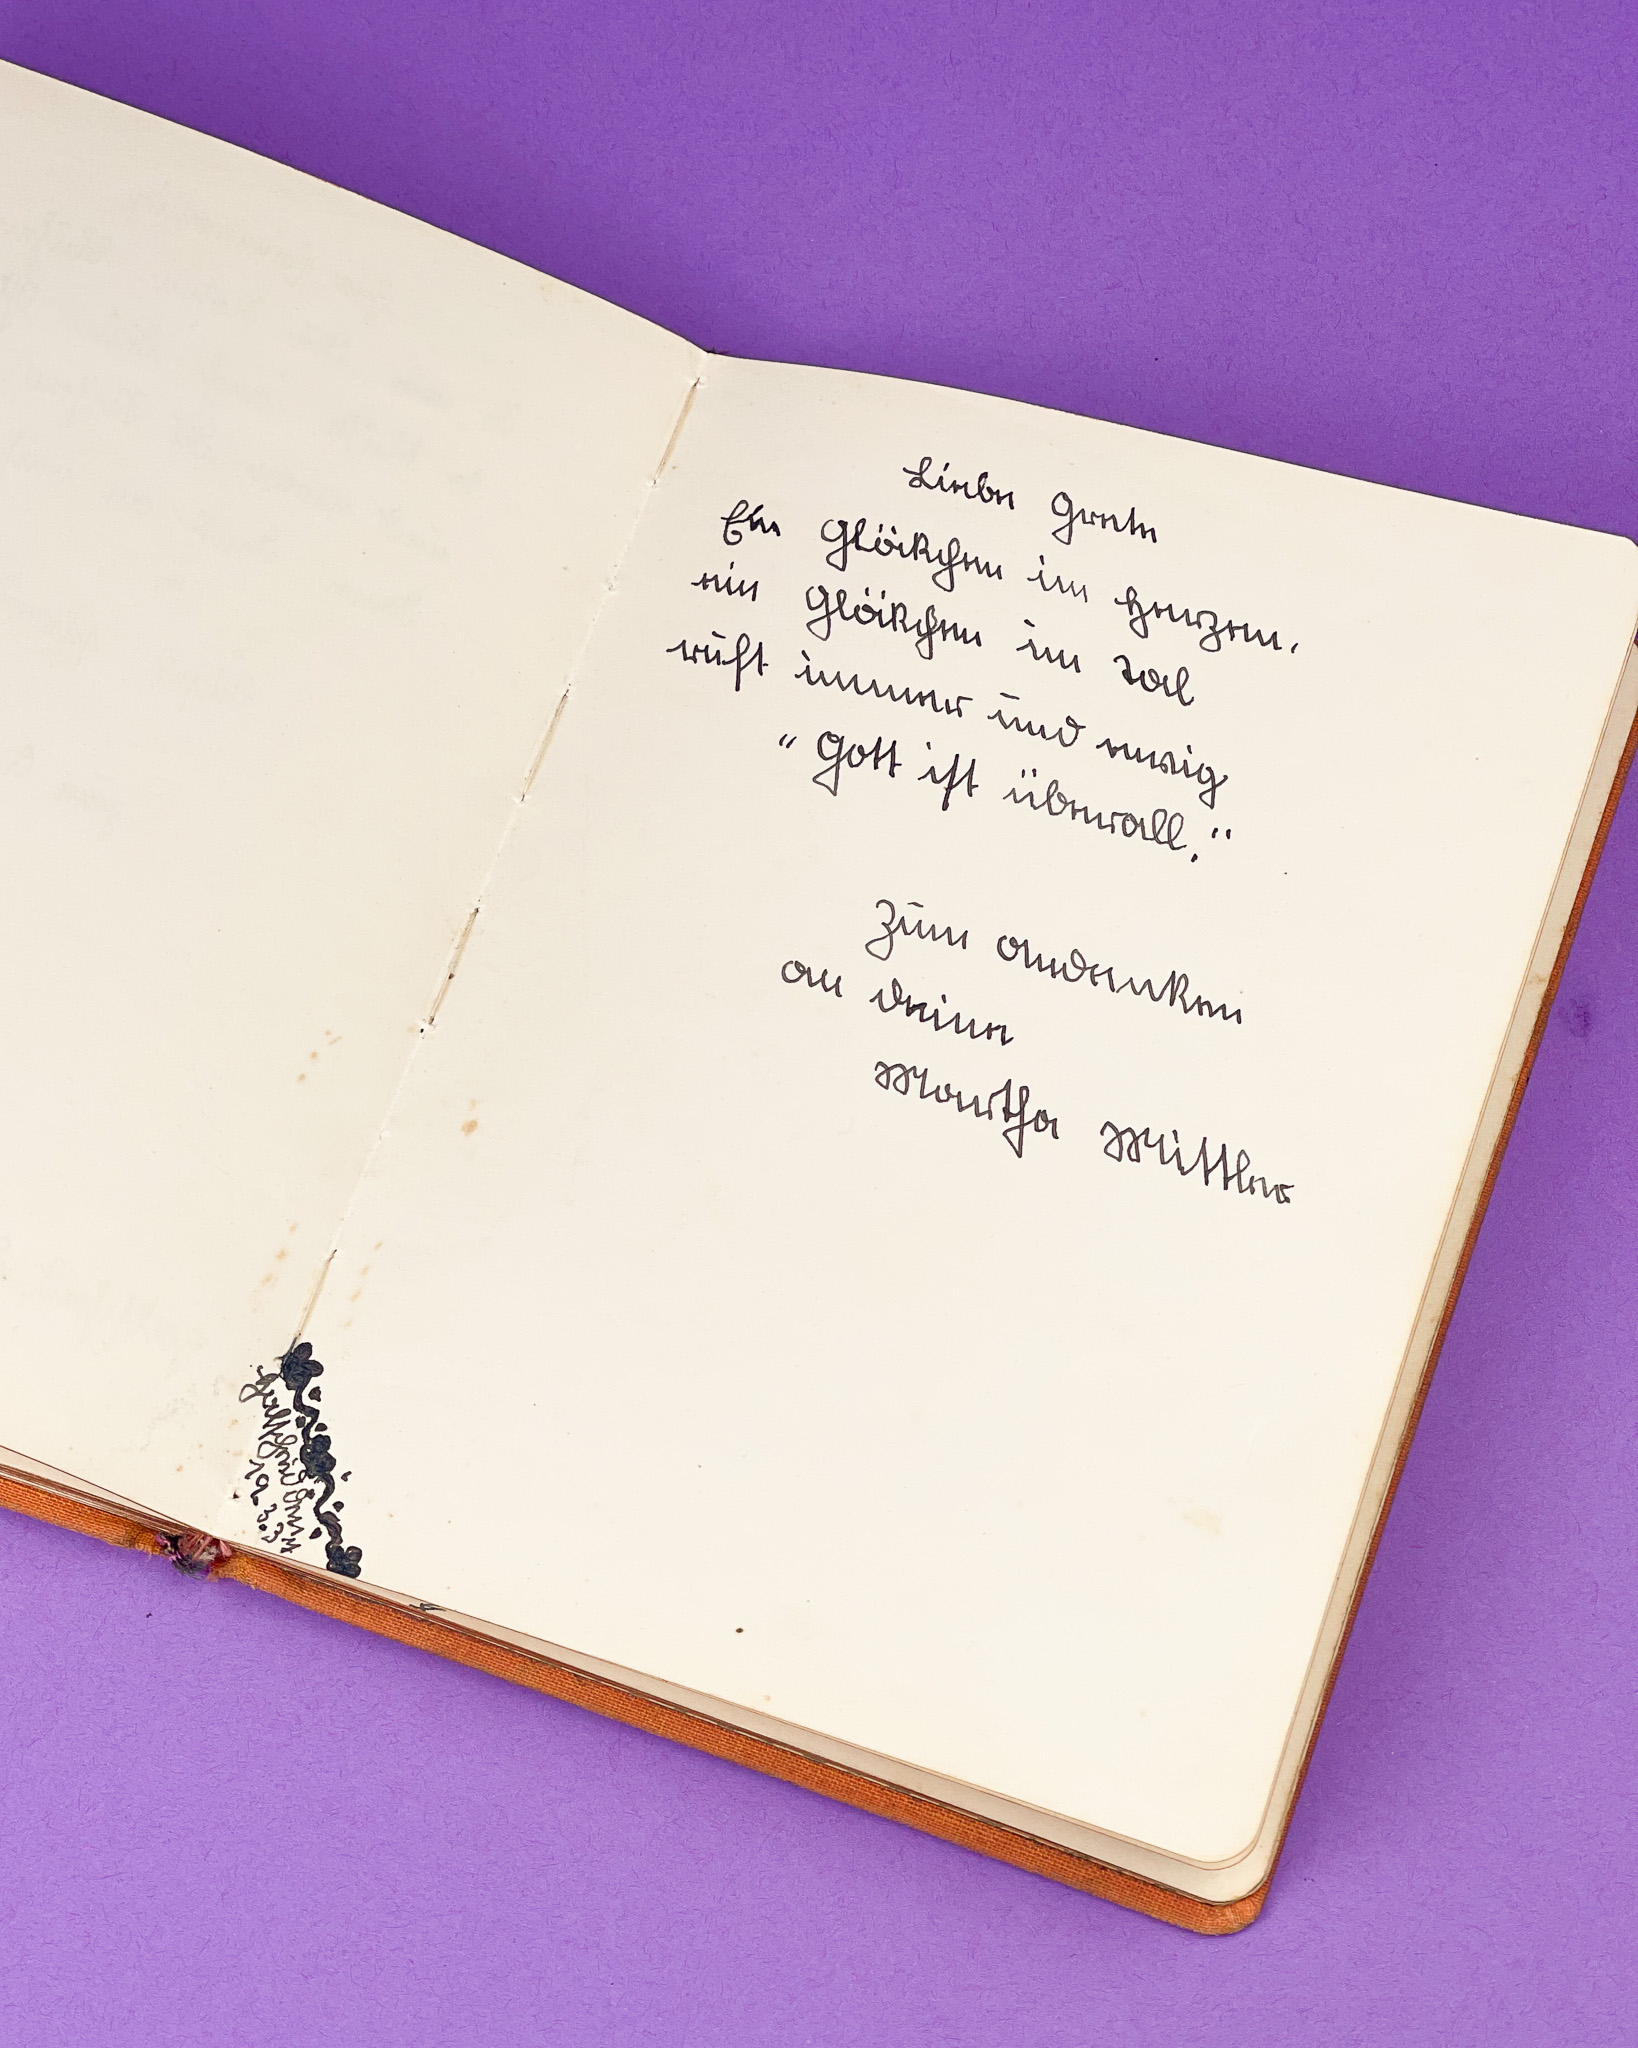 Liebe Grete
Ein Glöckchen im Herzen.
ein Glöckchen im Tal
ruft immer und ewig
"Gott ist überall."
Zum Andenken
an deine
Martha Mittler